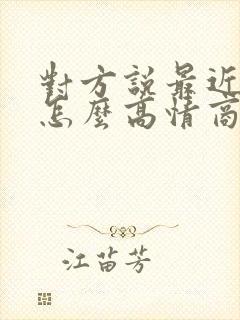 對方說最近
怎麼高情商
江苗芳